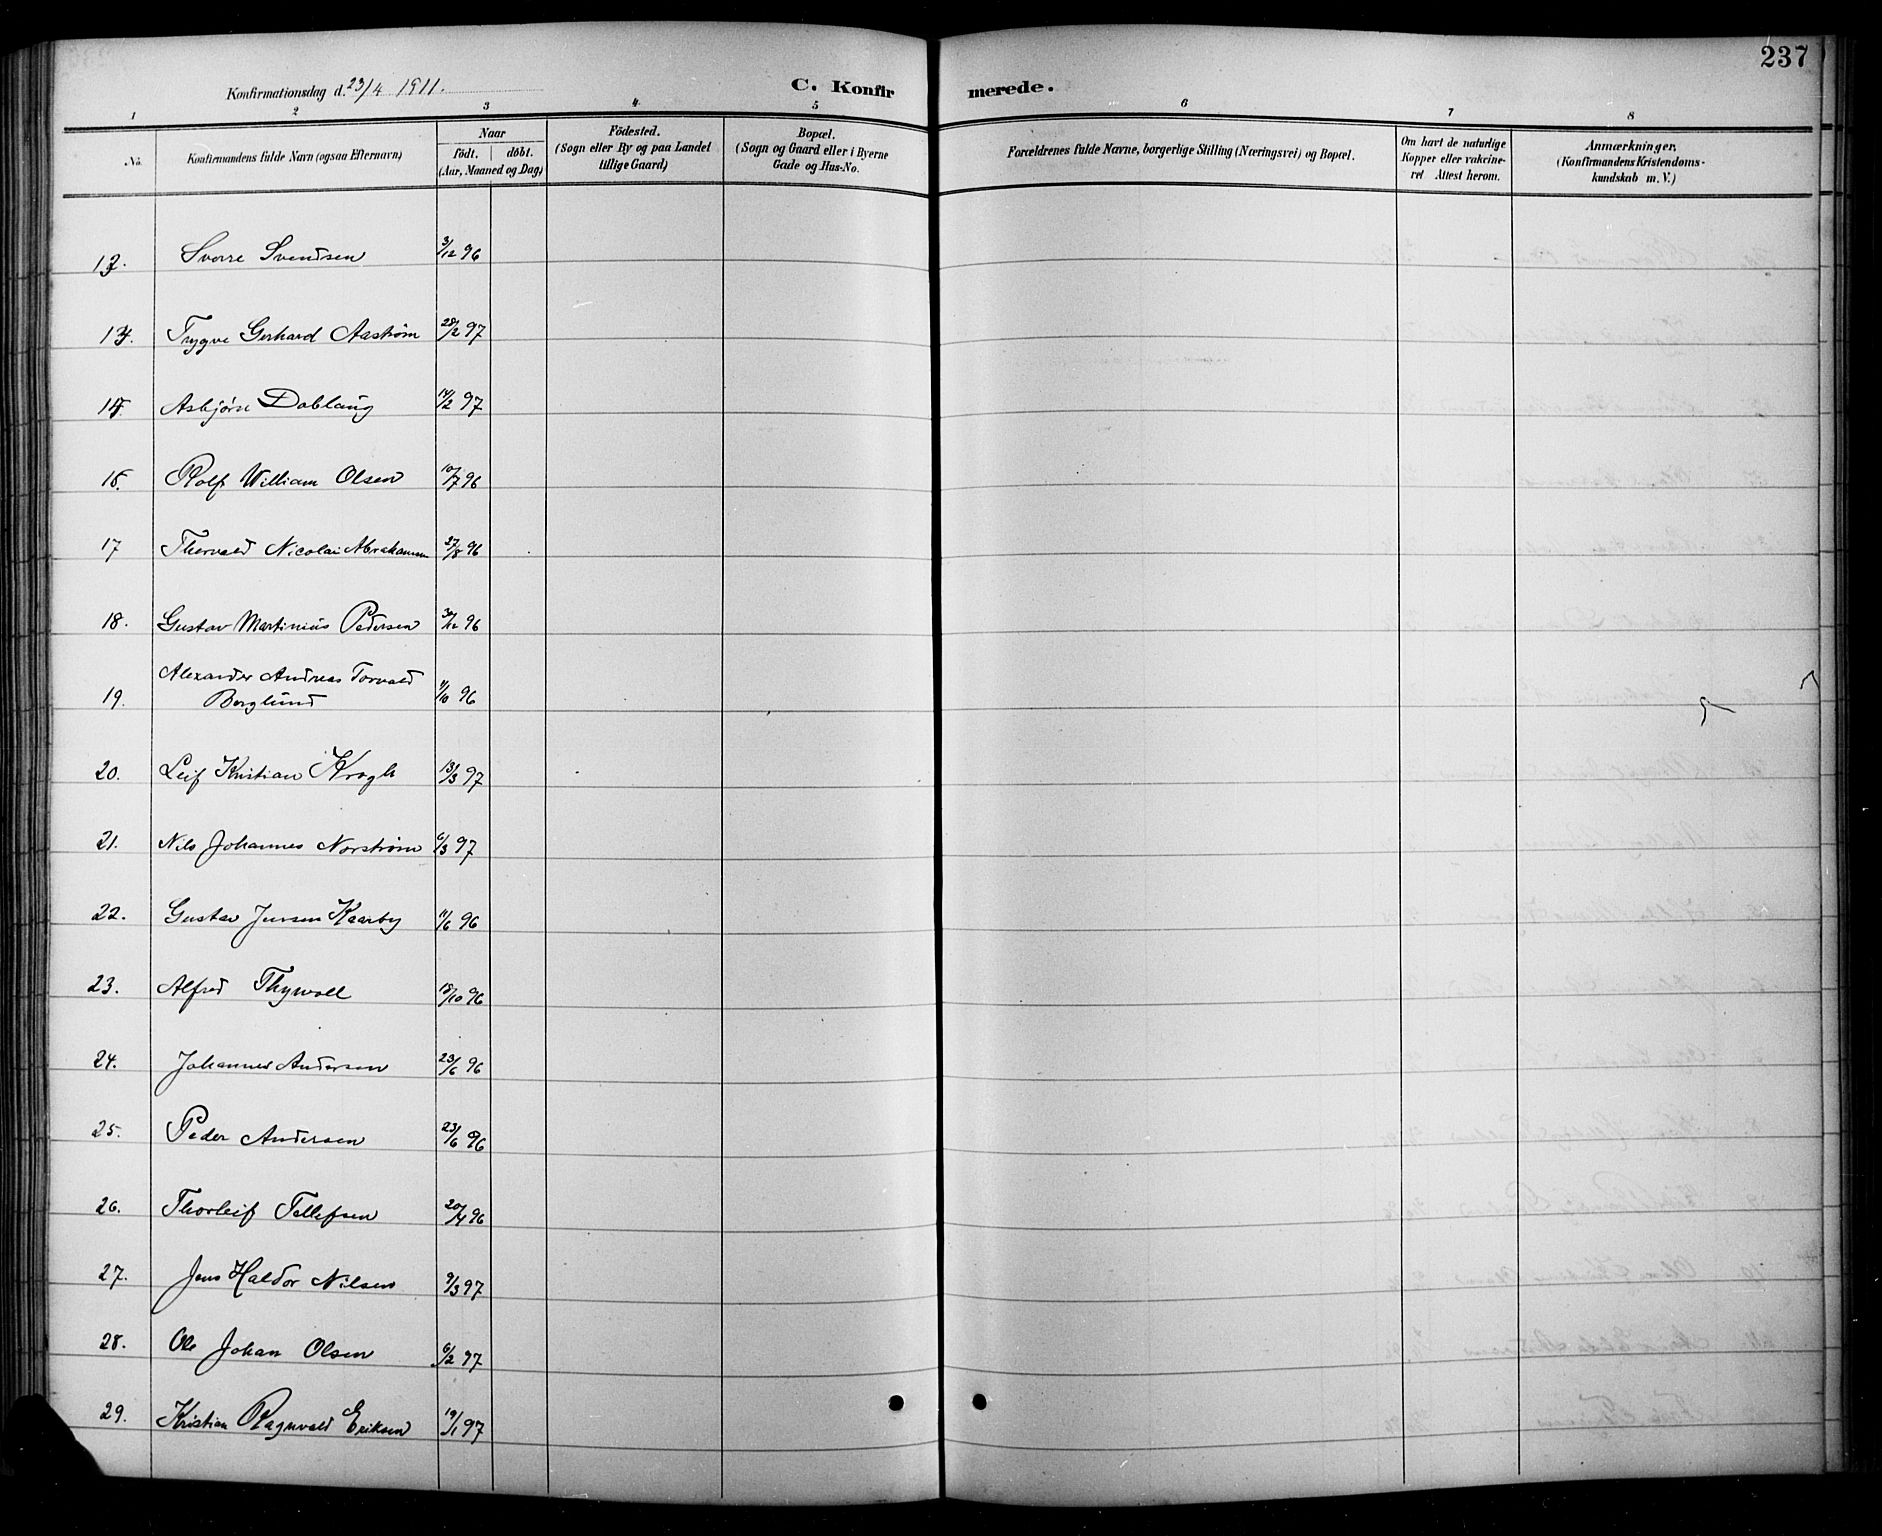 237
Konfirmationsdag d. 23/4 1911.
C. Konfirmerede.
1 2 3 4 5 6 7 8
No.
Konfirmandens fulde Navn (ogsaa Efternavn)
Naar
Födt. döbt.
(Aar, Maaned og Dag)
Födested.
(Sogn eller By og paa Landet
tillige Gaard)
Bopæl.
(Sogn og Gaard eller i Byerne
Gade og Hus-No.
Forældrenes fulde Navne, borgerlige Stilling (Næringsvei) og Bopæl.
Om havt de naturlige
Kopper eller vakcine-
ret Attest herom.
Anmærkninger,
(Konfirmandens Kristendoms-
kundskab m. V.)
Sverre Svendsen 3/12 96
Trygve Gerhard Aastrøm 28/2 97
Asbjørn Dablaug 14/2 97
16. Rolf William Olsen 10/7 96
17 Thorvald Nicolai Abrahamsen 27/8 96
18. Gustav Martinius Pedersen 30/12 96
Alexander Andreas Torvald
19. Berglund 11/10 96
20. Leif Kristian Krogh 13/3 97
21. Nils Johannes Norstrøm 6/3 97
22. Gustav Jensen Kaarby 11/6 96
23. Alfred Thynvoll 18/10 96
24. Johannes Andersen 23/6 96
25. Peder Andersen 23/6 96
26. Thorleif Tellefsen 20/4 96
27. Jens Haldor Nilsen 9/3 97
28. Ole Johan Olsen 6/2 97
29. Kristian Ragnvald Eriksen 19/1 97